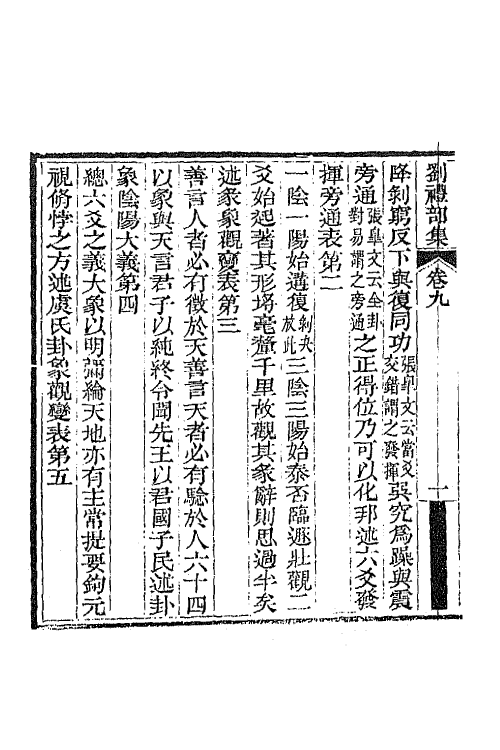 劉禮部集　卷九　一
降剝窮反下與復同功張皐文云當爻交錯謂之發揮巽究爲躁與震
旁通張皐文云全卦對易謂之旁通之正得位乃可以化邦述六爻發
揮旁通表第二
一陰一陽始遘復剝夬放此三陰三陽始泰否臨遯壯觀二
爻始起著其形埸毫釐千里故觀其象辭則思過半矣
述彖象觀變表第三
善言人者必有徵於天善言天者必有驗於人六十四
以象與天言君子以純終令聞先王以君國子民述卦
象陰陽大義第四
總六爻之義大象以明彌綸天地亦有主常提要鉤元
視脩悖之方述虞氏卦象觀變表第五